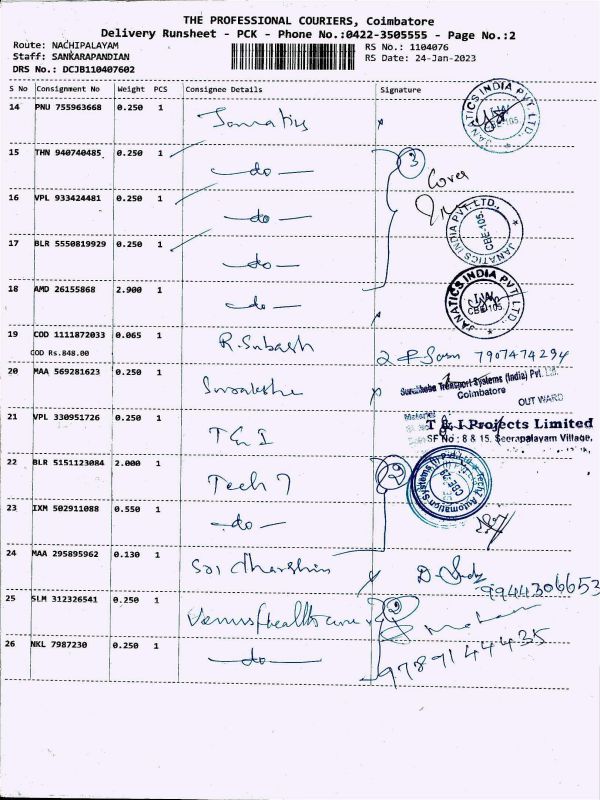 THE PROFESSIONAL COURIERS, Coimbatore
Delivery Runsheet - PCK - Phone No.:0422-3505555 - Page No.:2
Route: NACHIPALAYAM
RS No.: 1104076
Staff: SANKARAPANDIAN
RS Date: 24-Jan-2023
DRS No.: DCJB110407602
S No Consignment No Weight PCS Consignee Details Signature
14 PNU 755963668 0.250 1 Janatics
JANATICS INDIA PVT. LTD., CBE-105
15 THN 940740485 0.250 1 -do- 3
Cover
16 VPL 933424481 0.250 1 -do-
JANATICS INDIA PVT. LTD., CBE-105
17 BLR 5550819929 0.250 1 -do-
18 AMD 26155868 2.900 1 -do-
JANATICS INDIA PVT. LTD., CBE-105
19 COD 1111872033 0.065 1 R. Subash 7907474294
COD Rs.848.00
20 MAA 569281623 0.250 1
Transport Systems (India) Pvt. Ltd.
Coimbatore
OUT WARD
21 VPL 330951726 0.250 1 T & I
Material
T & I Projects Limited
SF No : 8 & 15, Seerapalayam Village,
22 BLR 5151123084 2.000 1 Tech 7 2
Automation Systems
23 IXM 502911088 0.550 1 -do-
24 MAA 295895962 0.130 1 Sai
9944306653
25 SLM 312326541 0.250 1 Venus healthcare 2
26 NKL 7987230 0.250 1 -do-
9789144435